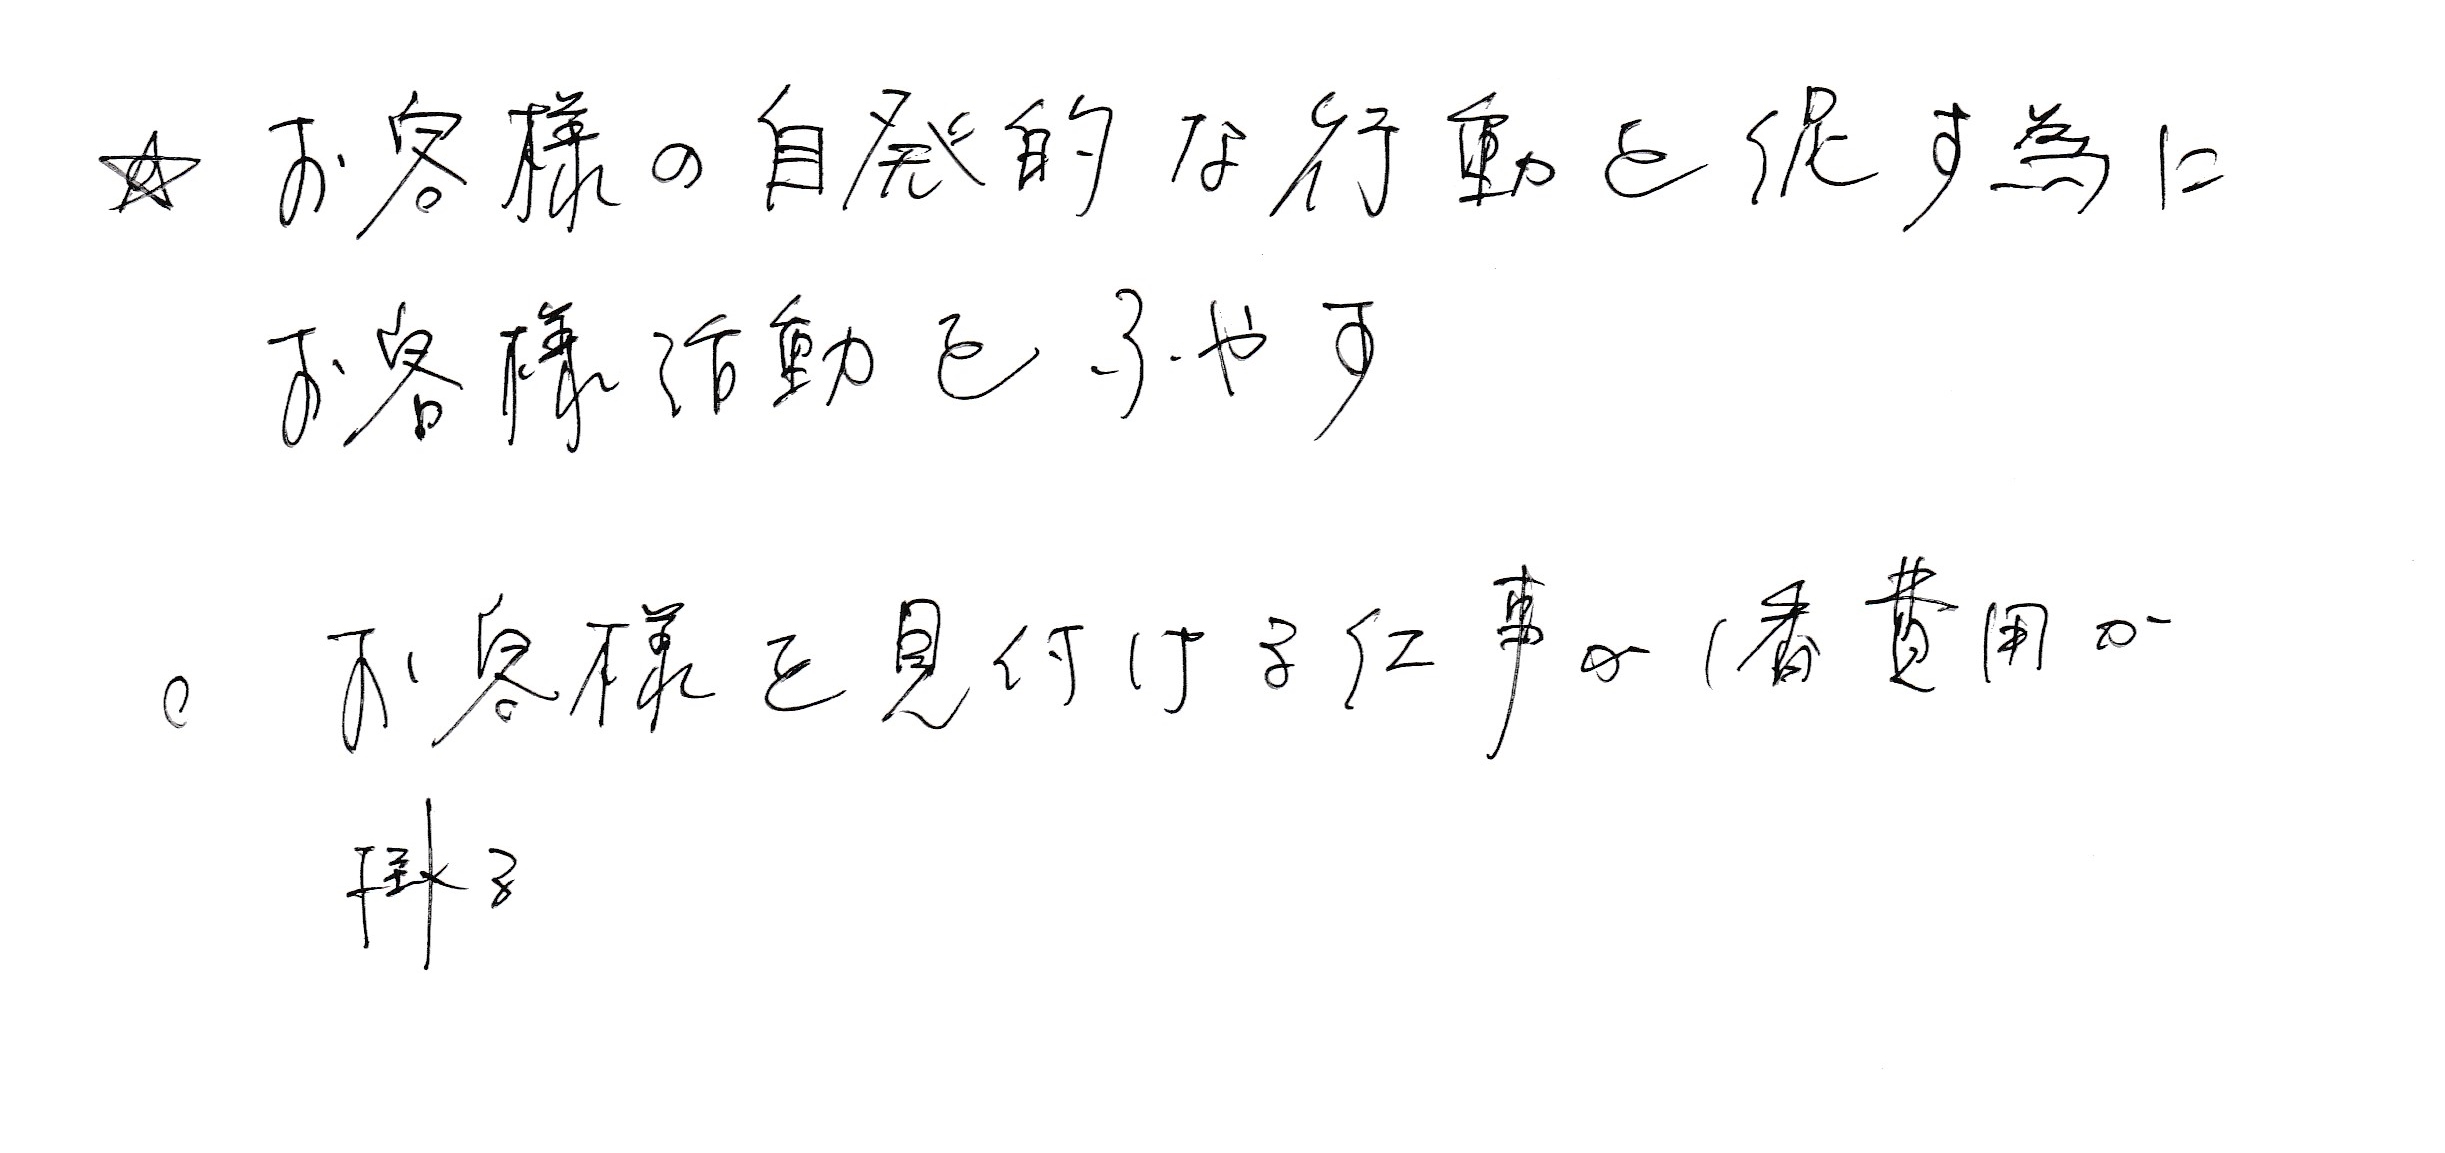 ☆ お客様の自発的な行動を促す為に
お客様活動をふやす
。お客様を見付ける仕事が1番費用が
掛る